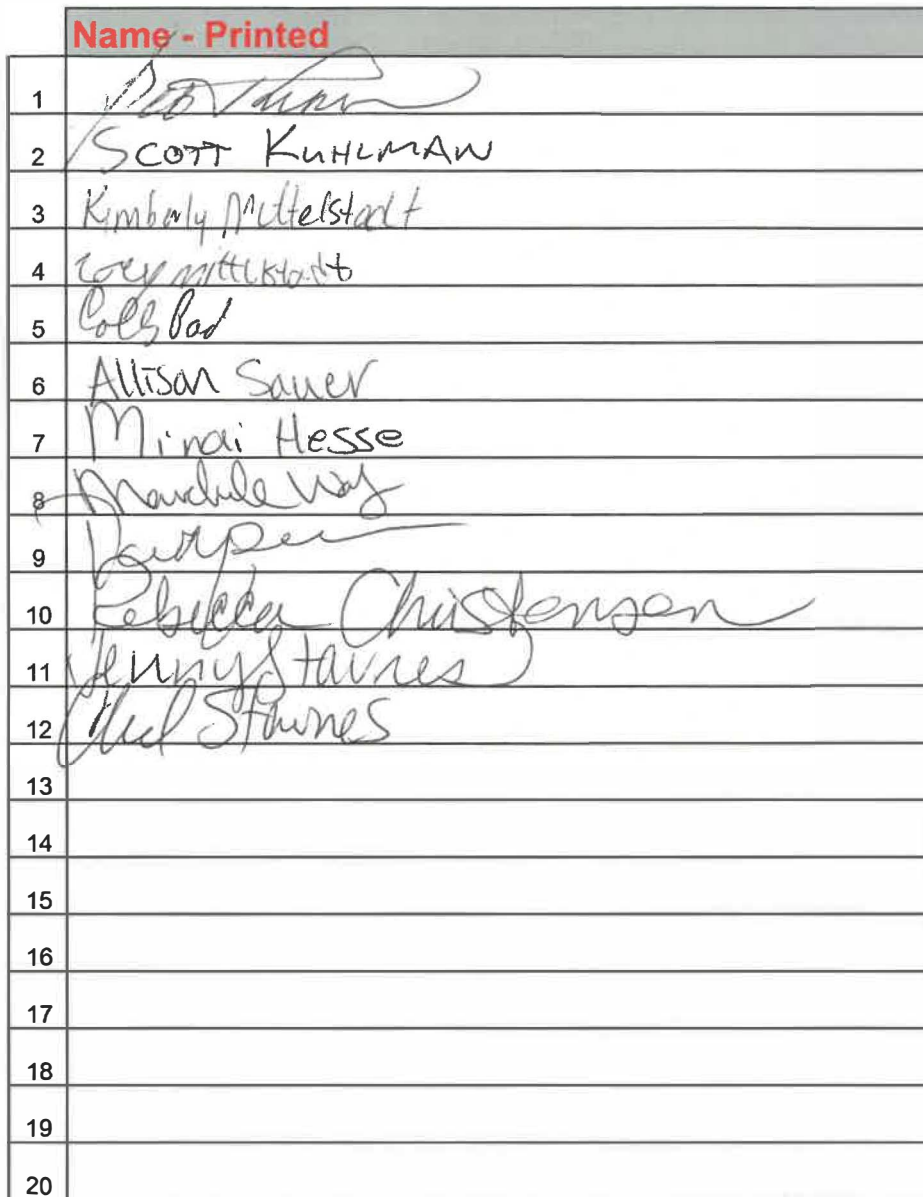 Name - Printed
1
2 SCOTT KUHLMAN
3 Kimberly Mittelstadt
4 Corey mittelstadt
5
6 Allison Sauer
7 Minai Hesse
8
9
10 Rebecca Christensen
11 Jenny Stavnes
12 Stavnes
13
14
15
16
17
18
19
20